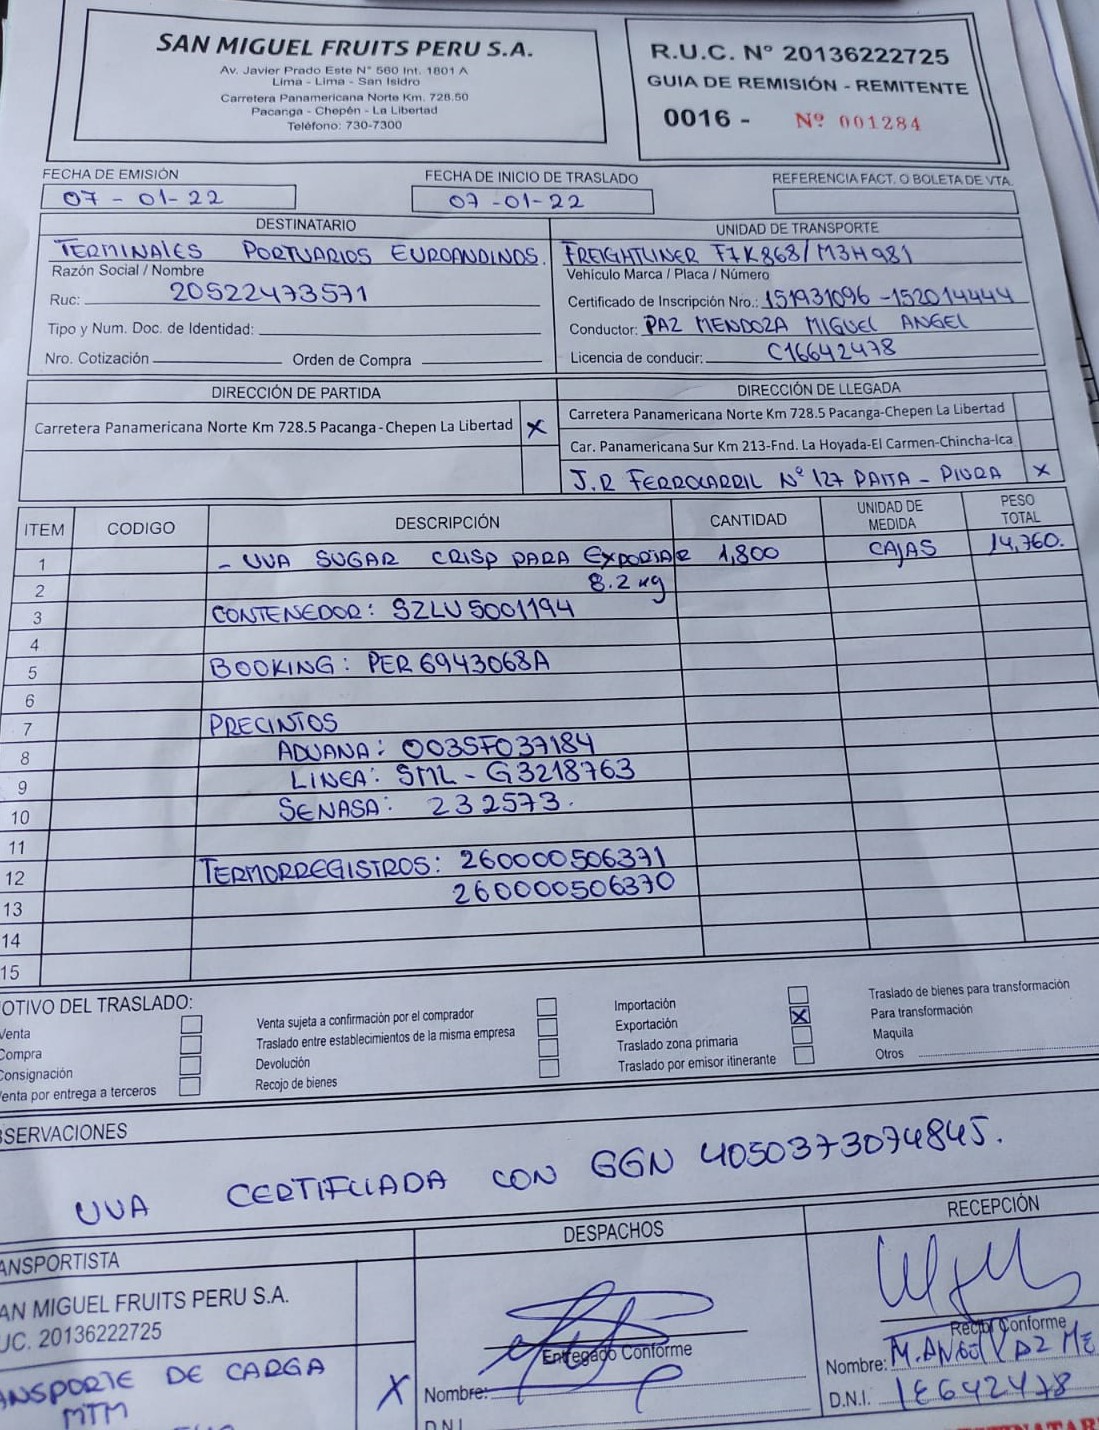 SAN MIGUEL FRUITS PERU S.A.
Av. Javier Prado Este N° 560 Int. 1801 A
Lima - Lima - San Isidro
Carretera Panamericana Norte Km. 728.50
Pacanga - Chepén - La Libertad
Teléfono: 730-7300
R.U.C. N° 20136222725
GUIA DE REMISIÓN - REMITENTE
0016 - Nº 001284
FECHA DE EMISIÓN
07 - 01 - 22
FECHA DE INICIO DE TRASLADO
07 - 01 - 22
REFERENCIA FACT. O BOLETA DE VTA.
DESTINATARIO
TERMINALES PORTUARIOS EUROANDINOS.
Razón Social / Nombre
Ruc: 20522473571
Tipo y Num. Doc. de Identidad:
Nro. Cotización Orden de Compra
UNIDAD DE TRANSPORTE
FREIGHTLINER F7K868/M3H981
Vehículo Marca / Placa / Número
Certificado de Inscripción Nro.: 151931096 - 152014444
Conductor: PAZ MENDOZA MIGUEL ANGEL
Licencia de conducir: C16642478
DIRECCIÓN DE PARTIDA
Carretera Panamericana Norte Km 728.5 Pacanga - Chepen La Libertad X
DIRECCIÓN DE LLEGADA
Carretera Panamericana Norte Km 728.5 Pacanga-Chepen La Libertad
Car. Panamericana Sur Km 213-Fnd. La Hoyada-El Carmen-Chincha-Ica
J.R FERROCARRIL N° 127 PAITA - PIURA X
ITEM CODIGO DESCRIPCIÓN CANTIDAD UNIDAD DE MEDIDA PESO TOTAL
1 - UVA SUGAR CRISP PARA EXPORTAR 1,800 CAJAS 14,760.
2 8.2 kg
3 CONTENEDOR: SZLU5001194
4
5 BOOKING: PER6943068A
6
7 PRECINTOS
8 ADUANA: 003SF037184
9 LINEA: SML - G3218763
10 SENASA: 232573.
11
12 TERMORREGISTROS: 260000506371
13 260000506370
14
15
OTIVO DEL TRASLADO:
Venta
Compra
Consignación
enta por entrega a terceros
Venta sujeta a confirmación por el comprador
Traslado entre establecimientos de la misma empresa
Devolución
Recojo de bienes
Importación
Exportación X
Traslado zona primaria
Traslado por emisor itinerante
Traslado de bienes para transformación
Para transformación
Maquila
Otros
SERVACIONES
UVA CERTIFICADA CON GGN 4050373074845.
ANSPORTISTA
AN MIGUEL FRUITS PERU S.A.
UC. 20136222725
ANSPORTE DE CARGA X
MTM
DESPACHOS
Entregado Conforme
Nombre:
D.N.I.
RECEPCIÓN
Recibí Conforme
Nombre: M. ANGEL PAZ ME
D.N.I. 16642478